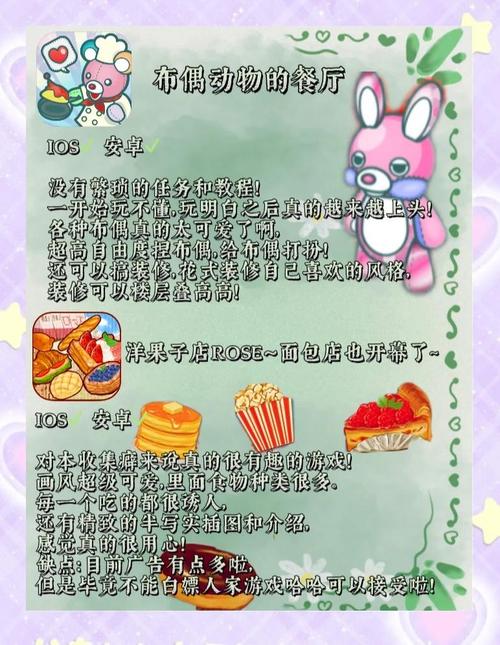 布偶动物的餐厅
IOS✓ 安卓✓
没有繁琐的任务和教程!
一开始玩不懂,玩明白之后真的越来越上头!
各种布偶真的太可爱了啊,
超高自由度捏布偶,给布偶打扮!
还可以搞装修,花式装修自己喜欢的风格,
装修可以楼层叠高高!
洋果子店ROSE~面包店也开幕了~
IOS✓ 安卓✓
对本收集癖来说真的很有趣的游戏!
画风超级可爱,里面食物种类很多,
每一个吃的都很诱人,
还有精致的半写实插图和介绍,
感觉真的很用心!
缺点:目前广告有点多啦,
但是毕竟不能白嫖人家游戏哈哈可以接受啦!